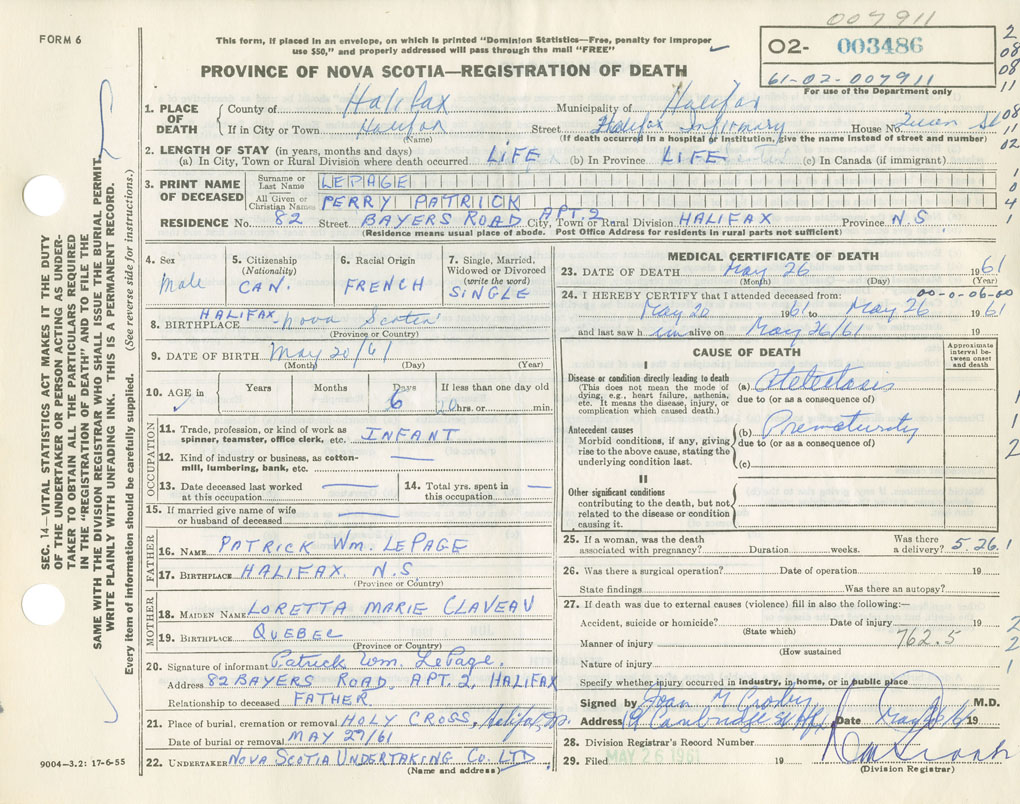 007911
FORM 6
This form, if placed in an envelope, on which is printed "Dominion Statistics—Free, penalty for improper
use $50," and properly addressed will pass through the mail "FREE"
O2- 003486
61-02-007911
For use of the Department only
PROVINCE OF NOVA SCOTIA—REGISTRATION OF DEATH
1. PLACE OF DEATH
County of Halifax Municipality of Halifax
If in City or Town Halifax Street Halifax Infirmary House No. Queen St
(Name) (If death occurred in a hospital or institution, give the name instead of street and number)
2. LENGTH OF STAY (in years, months and days)
(a) In City, Town or Rural Division where death occurred LIFE (b) In Province LIFE (c) In Canada (if immigrant)
3. PRINT NAME OF DECEASED
Surname or Last Name LEPAGE
All Given or Christian Names PERRY PATRICK
RESIDENCE No. 82 Street BAYERS ROAD APT. 2 City, Town or Rural Division HALIFAX Province N.S
(Residence means usual place of abode. Post Office Address for residents in rural parts not sufficient)
4. Sex
Male
5. Citizenship
(Nationality)
CAN.
6. Racial Origin
FRENCH
7. Single, Married,
Widowed or Divorced
(write the word)
SINGLE
8. BIRTHPLACE HALIFAX - Nova Scotia
(Province or Country)
9. DATE OF BIRTH May 20/61
(Month) (Day) (Year)
10. AGE in
Years Months Days If less than one day old
6 hrs. or min.
OCCUPATION
11. Trade, profession, or kind of work as
spinner, teamster, office clerk, etc. INFANT
12. Kind of industry or business, as cotton-
mill, lumbering, bank, etc. —
13. Date deceased last worked
at this occupation —
14. Total yrs. spent in
this occupation —
15. If married give name of wife
or husband of deceased —
FATHER
16. NAME PATRICK WM. LEPAGE
17. BIRTHPLACE HALIFAX. N.S.
(Province or Country)
MOTHER
18. MAIDEN NAME LORETTA MARIE CLAVEAU
19. BIRTHPLACE QUEBEC
(Province or Country)
20. Signature of informant Patrick Wm. LePage.
Address 82 BAYERS ROAD, APT. 2, HALIFAX
Relationship to deceased FATHER.
21. Place of burial, cremation or removal HOLY CROSS, Halifax,
Date of burial or removal MAY 27/61
22. UNDERTAKER NOVA SCOTIA UNDERTAKING CO. LTD.
(Name and address)
MEDICAL CERTIFICATE OF DEATH
23. DATE OF DEATH May 26 1961
(Month) (Day) (Year)
24. I HEREBY CERTIFY that I attended deceased from: 00-0-06-00
May 20 1961 to May 26 1961
and last saw him alive on May 26/61 19
CAUSE OF DEATH
Approximate
interval be-
tween onset
and death
I
Disease or condition directly leading to death
(This does not mean the mode of
dying, e.g., heart failure, asthenia,
etc. It means the disease, injury, or
complication which caused death.)
(a) Atelectasis
due to (or as a consequence of)
Antecedent causes
Morbid conditions, if any, giving
rise to the above cause, stating the
underlying condition last.
(b) Prematurity
due to (or as a consequence of)
(c)
II
Other significant conditions
contributing to the death, but not
related to the disease or condition
causing it.
25. If a woman, was the death
associated with pregnancy? Duration weeks. Was there
a delivery? 5.26.1
26. Was there a surgical operation? Date of operation 19
State findings Was there an autopsy?
27. If death was due to external causes (violence) fill in also the following:—
Accident, suicide or homicide? Date of injury 19
(State which)
Manner of injury 762.5
(How sustained)
Nature of injury
Specify whether injury occurred in industry, in home, or in public place
Signed by Joan M Crosby M.D.
Address Cambridge St Date May 26/61 19
28. Division Registrar's Record Number
29. Filed MAY 26 1961 19
(Division Registrar)
SEC. 14—VITAL STATISTICS ACT MAKES IT THE DUTY
OF THE UNDERTAKER OR PERSON ACTING AS UNDER-
TAKER TO OBTAIN ALL THE PARTICULARS REQUIRED
IN THE "REGISTRATION OF DEATH" AND TO FILE THE
SAME WITH THE DIVISION REGISTRAR WHO SHALL ISSUE THE BURIAL PERMIT.
WRITE PLAINLY WITH UNFADING INK. THIS IS A PERMANENT RECORD.
Every item of information should be carefully supplied. (See reverse side for instructions.)
9004—3.2: 17-6-55
2
08
08
11
08
11
02
1
0
4
1
1
1
2
1
2
2
1